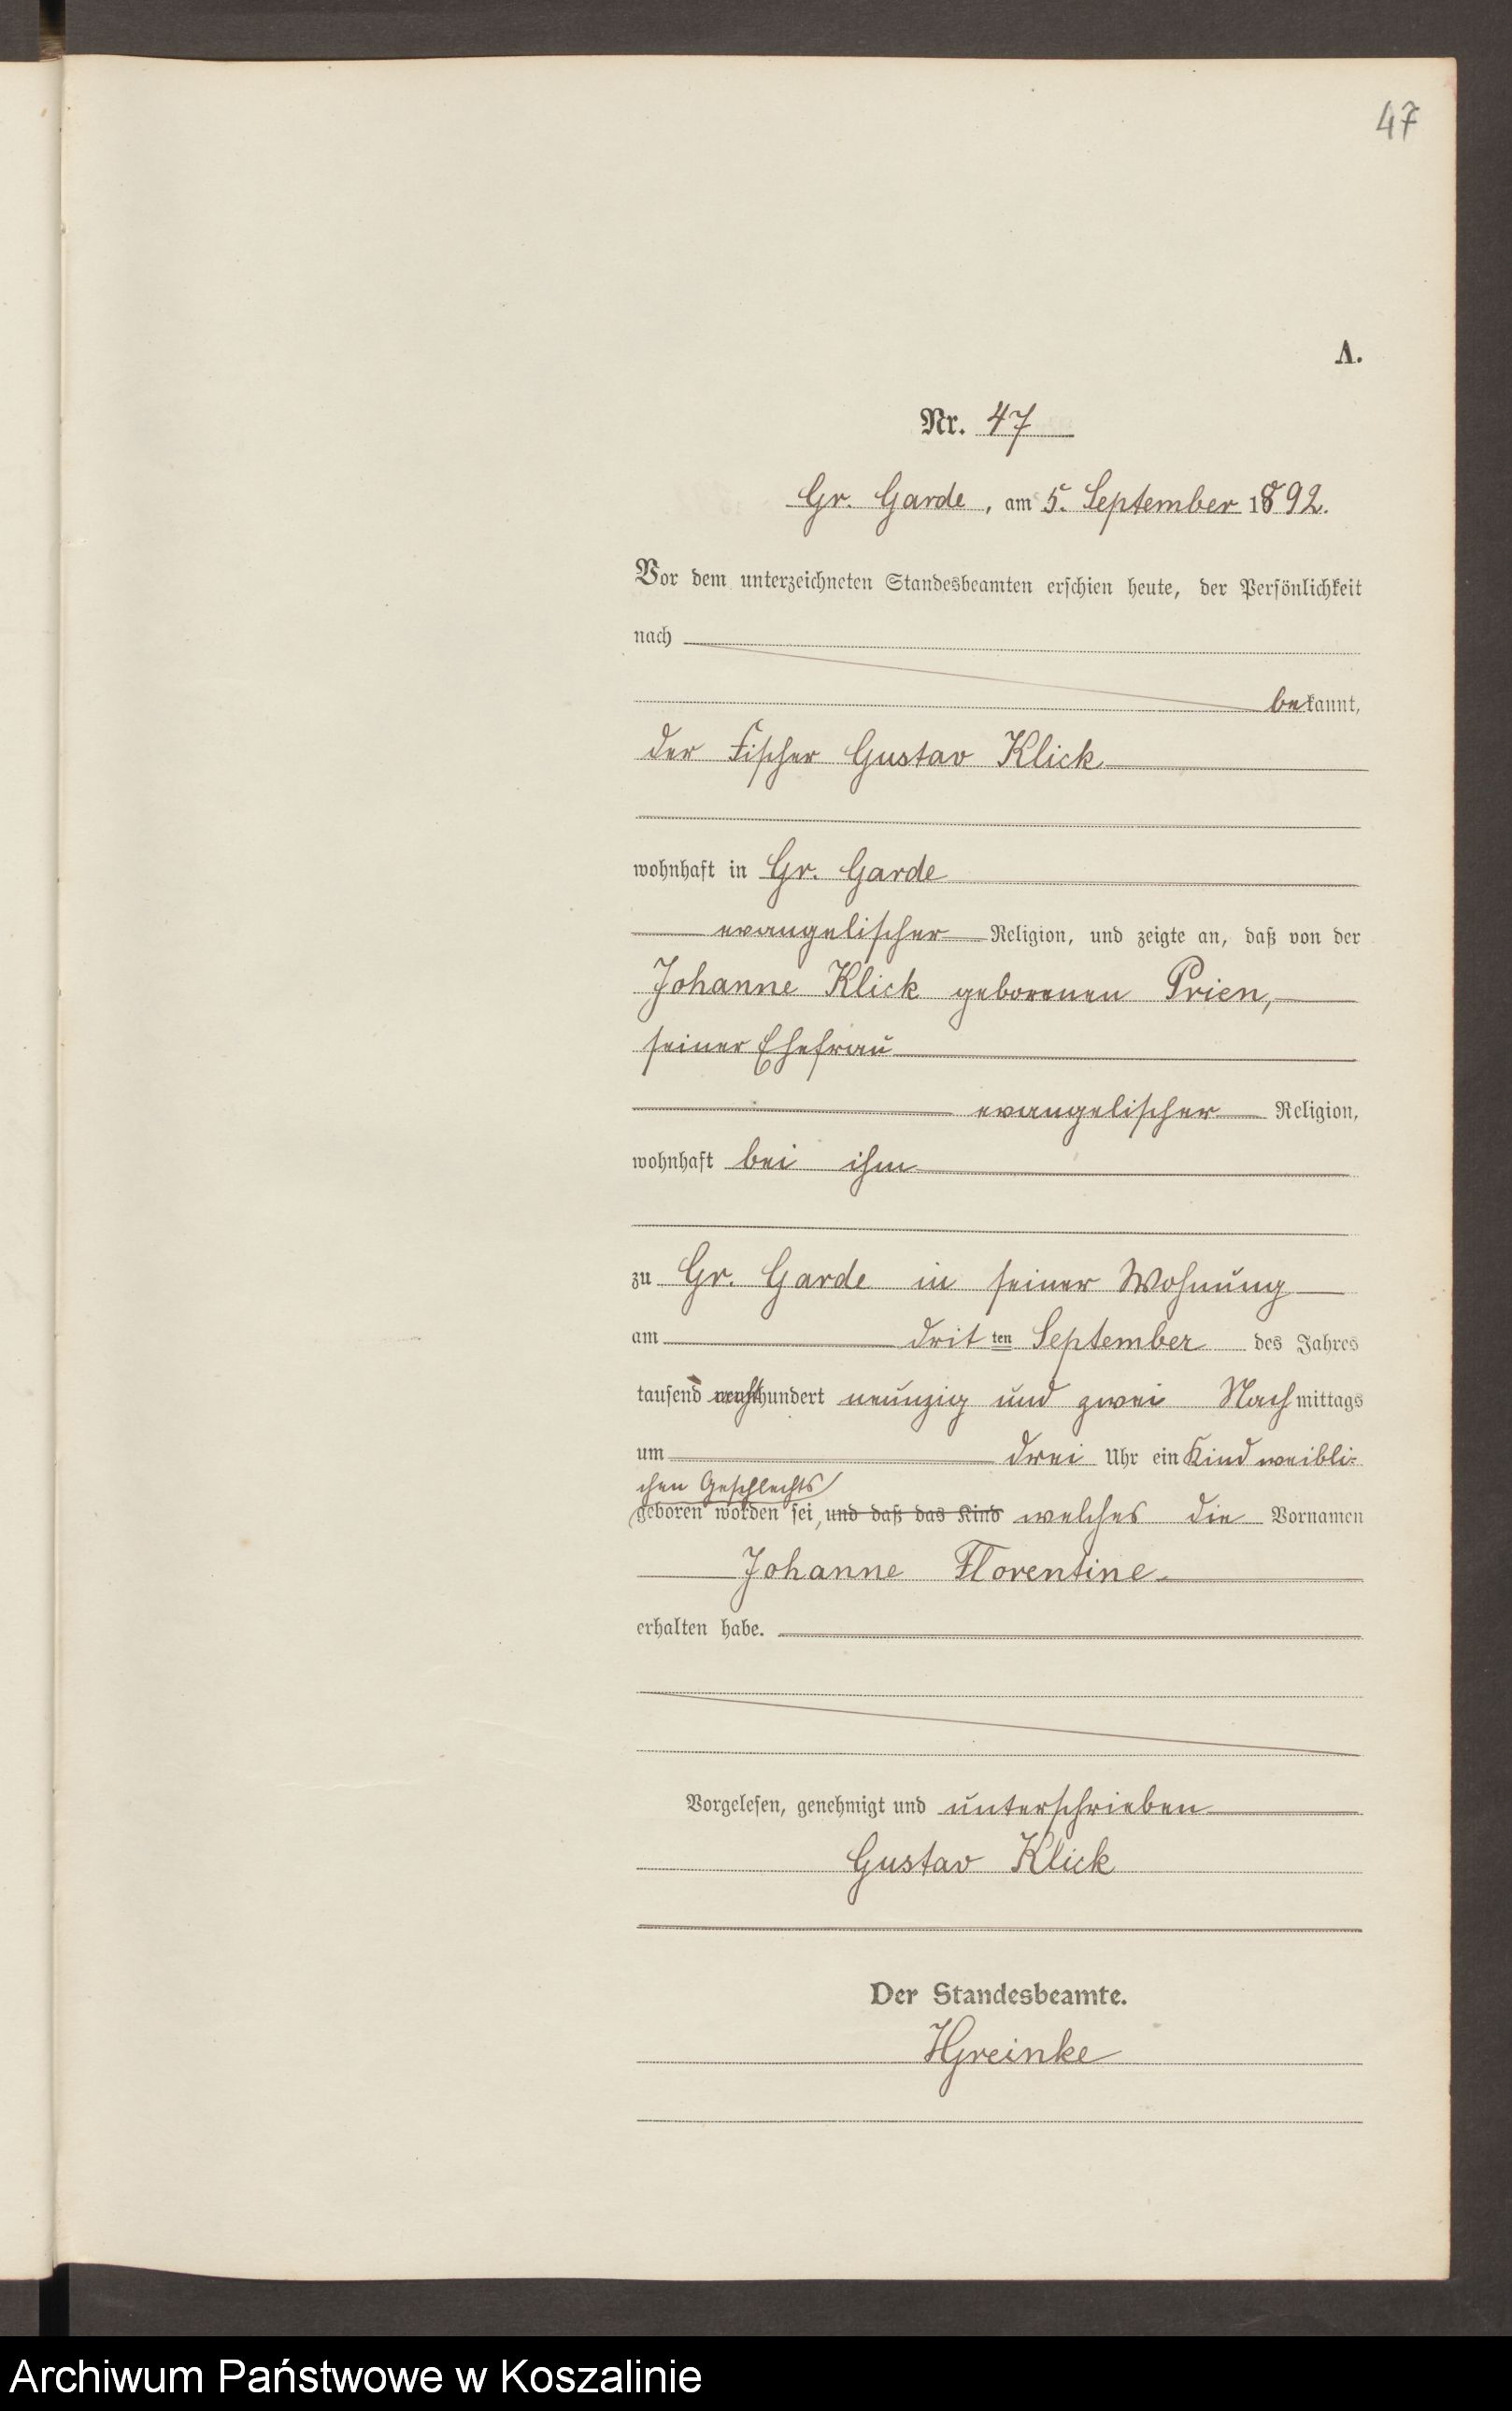 47
A.
Nr. 47
Gr. Garde, am 5. September 1892.
Vor dem unterzeichneten Standesbeamten erschien heute, der Persönlichkeit
nach
bekannt,
der Fischer Gustav Klick
wohnhaft in Gr. Garde
evangelischer Religion, und zeigte an, daß von der
Johanne Klick geborenen Prien,
seiner Ehefrau
evangelischer Religion,
wohnhaft bei ihm
zu Gr. Garde in seiner Wohnung
am dritten September des Jahres
tausend achthundert neunzig und zwei Nachmittags
um drei Uhr ein Kind weibli-
chen Geschlechts
geboren worden sei, und daß das Kind welches die Vornamen
Johanne Florentine
erhalten habe.
Vorgelesen, genehmigt und unterschrieben
Gustav Klick
Der Standesbeamte.
HGreinke
Archiwum Państwowe w Koszalinie